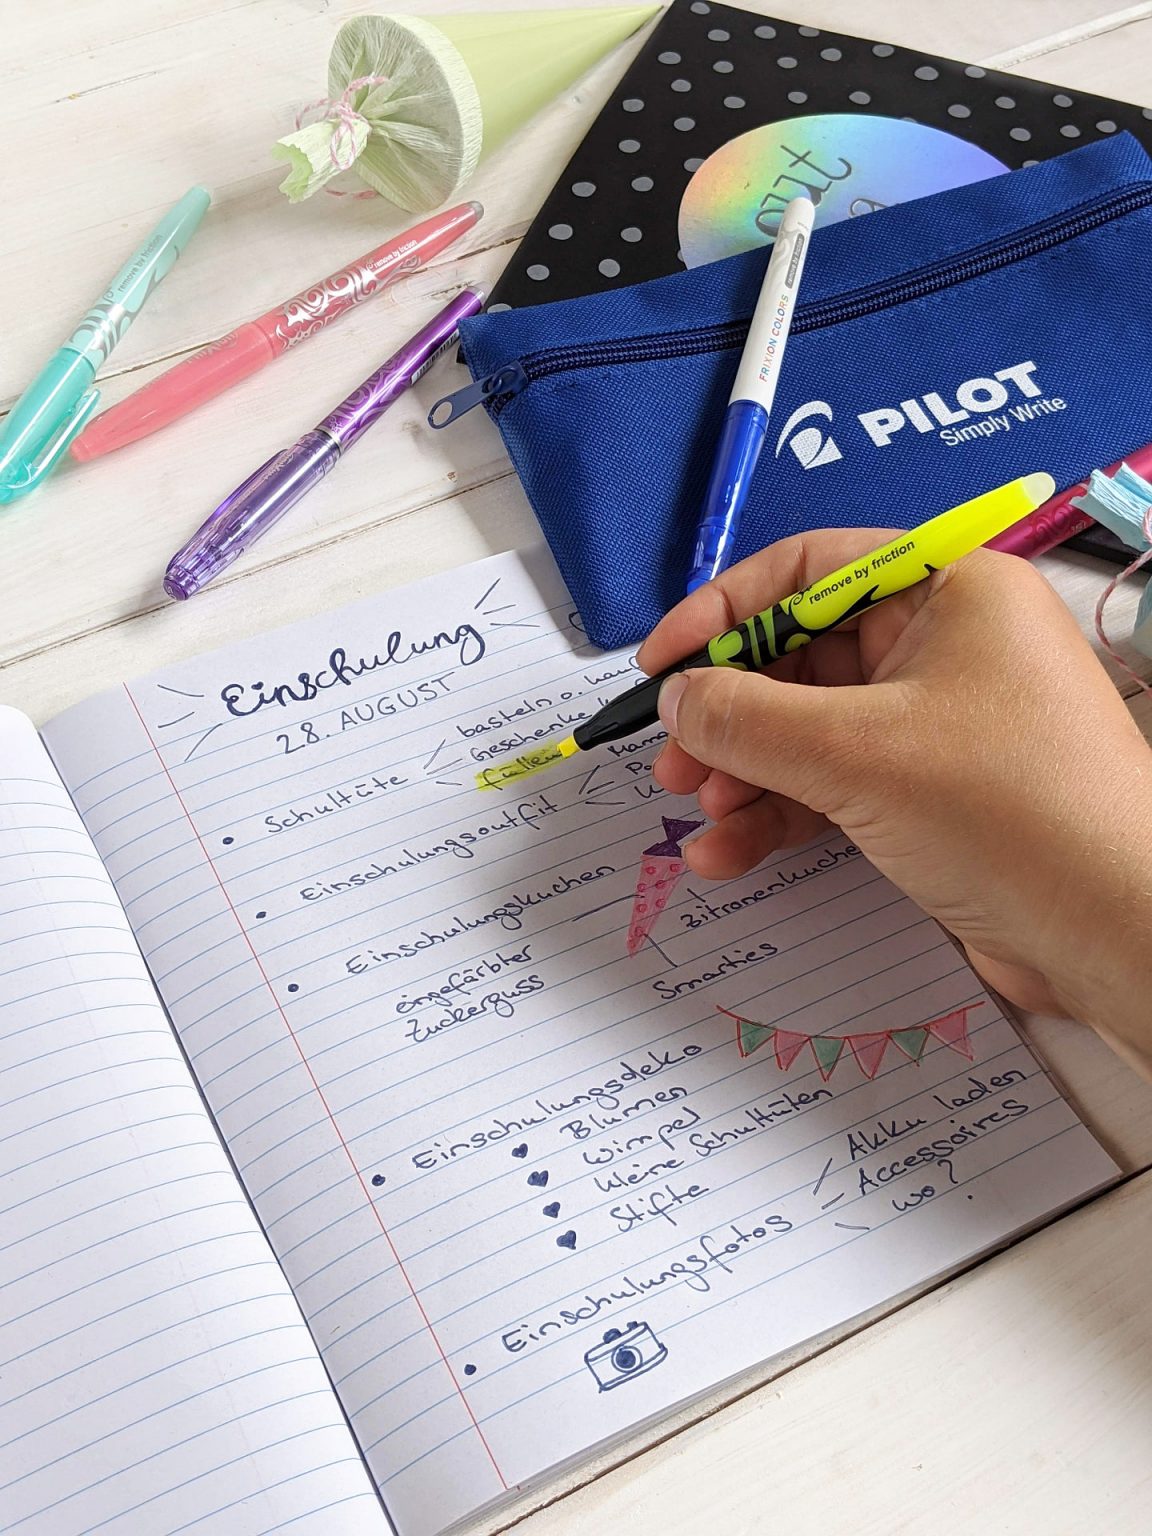 out
remove by friction
remove by friction
FRIXION COLORS
PILOT
Simply Write
remove by friction
Einschulung
28. AUGUST
basteln o.
Geschenke
füllen
• Schultüte
Mama
• Einschulungsoutfit
• Einschulungskuchen
Zitronenkuchen
eingefärbter
Zuckerguss
Smarties
• Einschulungsdeko
♥ Blumen
♥ Wimpel
♥ kleine Schultüten
♥ Stifte
• Einschulungsfotos
Akku laden
Accessoires
wo?